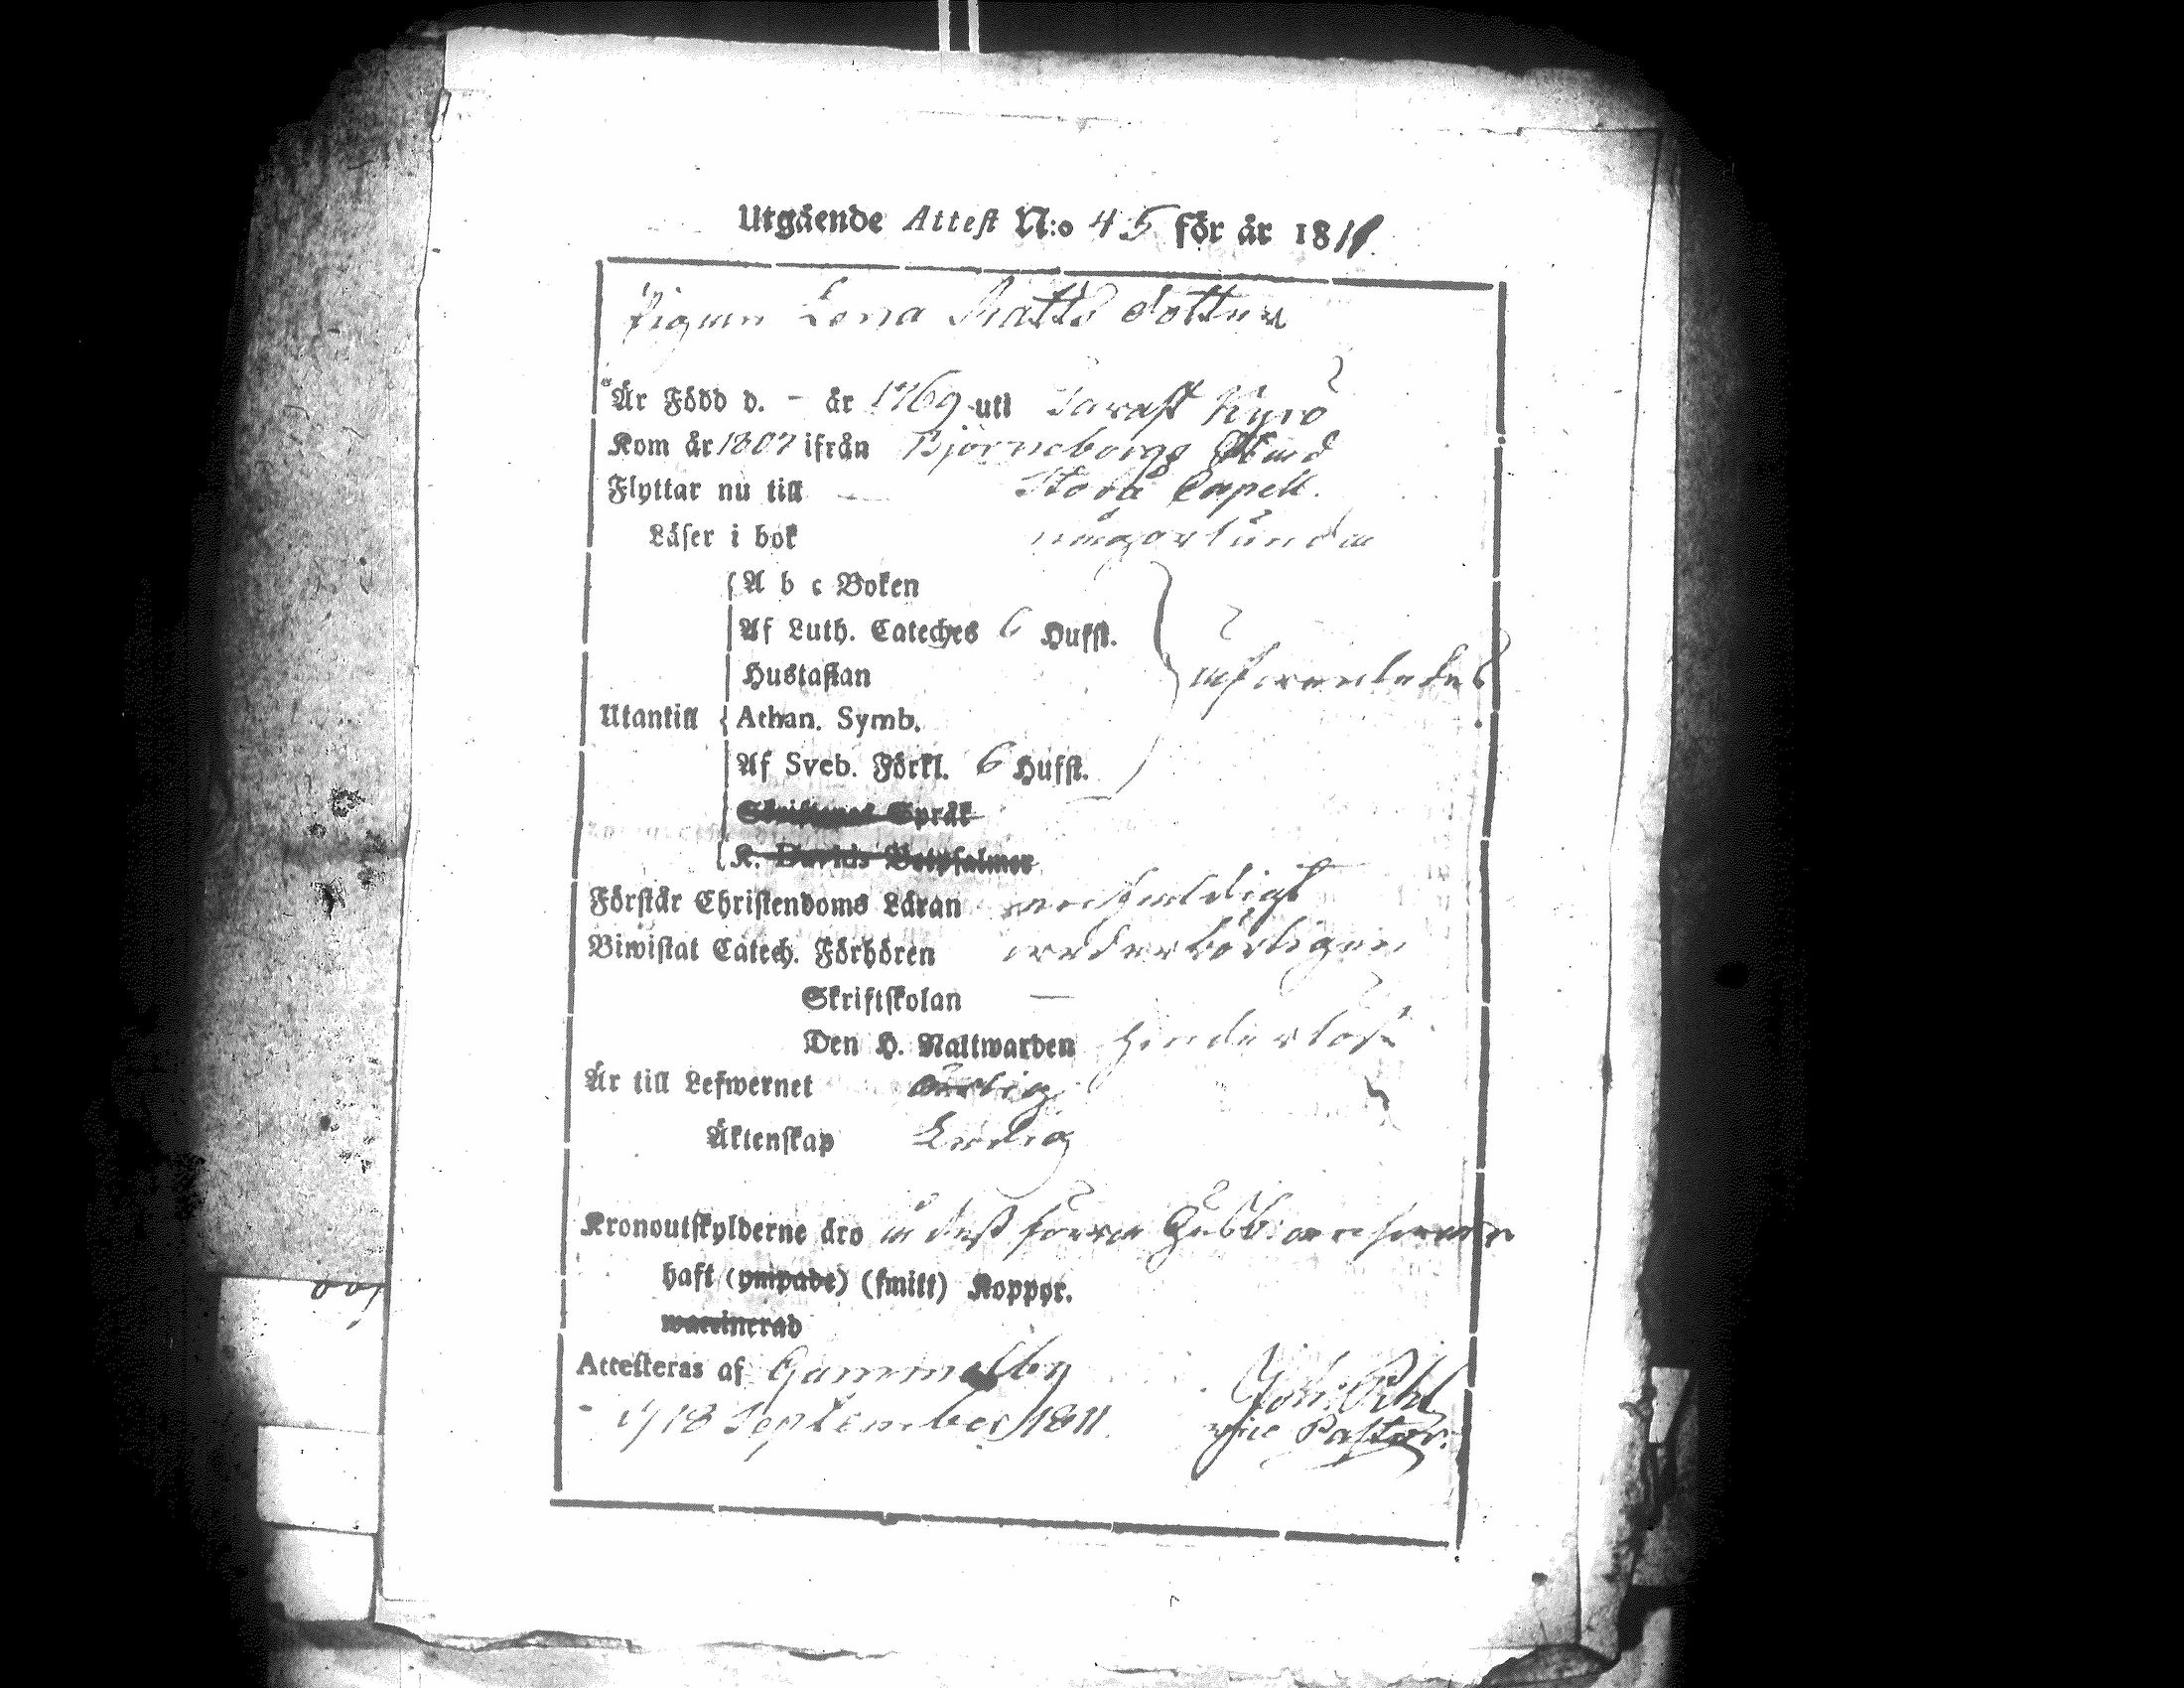 Utgående Attest N:o 45 för år 1811.
Pigan Lena Matts dotter
Är Född d. - år 1769 uti Tavast Kyrö
Kom år 1807 ifrån Björneborgs Stad
Flyttar nu till Storå Capell.
Läser i bok någorlunda
A b c Boken
Af Luth. Cateches 6 Hufst.
Hustaflan
Utantill Athan. Symb. äfvenledes
Af Sveb. Förkl. 6 Hufst.
Skriftenes Språk
K. Davids Botpsalmer
Förstår Christendoms Läran enfaldigt
Biwistat Catech. Förhören vederbörligen
Skriftskolan —
Den H. Nattwarden hinderlös
Är till Lefwernet ärlig
Äktenskap Ledig
Kronoutskylderne äro i dess förra
haft (ympade) (smitt) Koppor.
waccinerad
Attesteras af Gammelby
d. 18 September 1811.
vice Pastor.